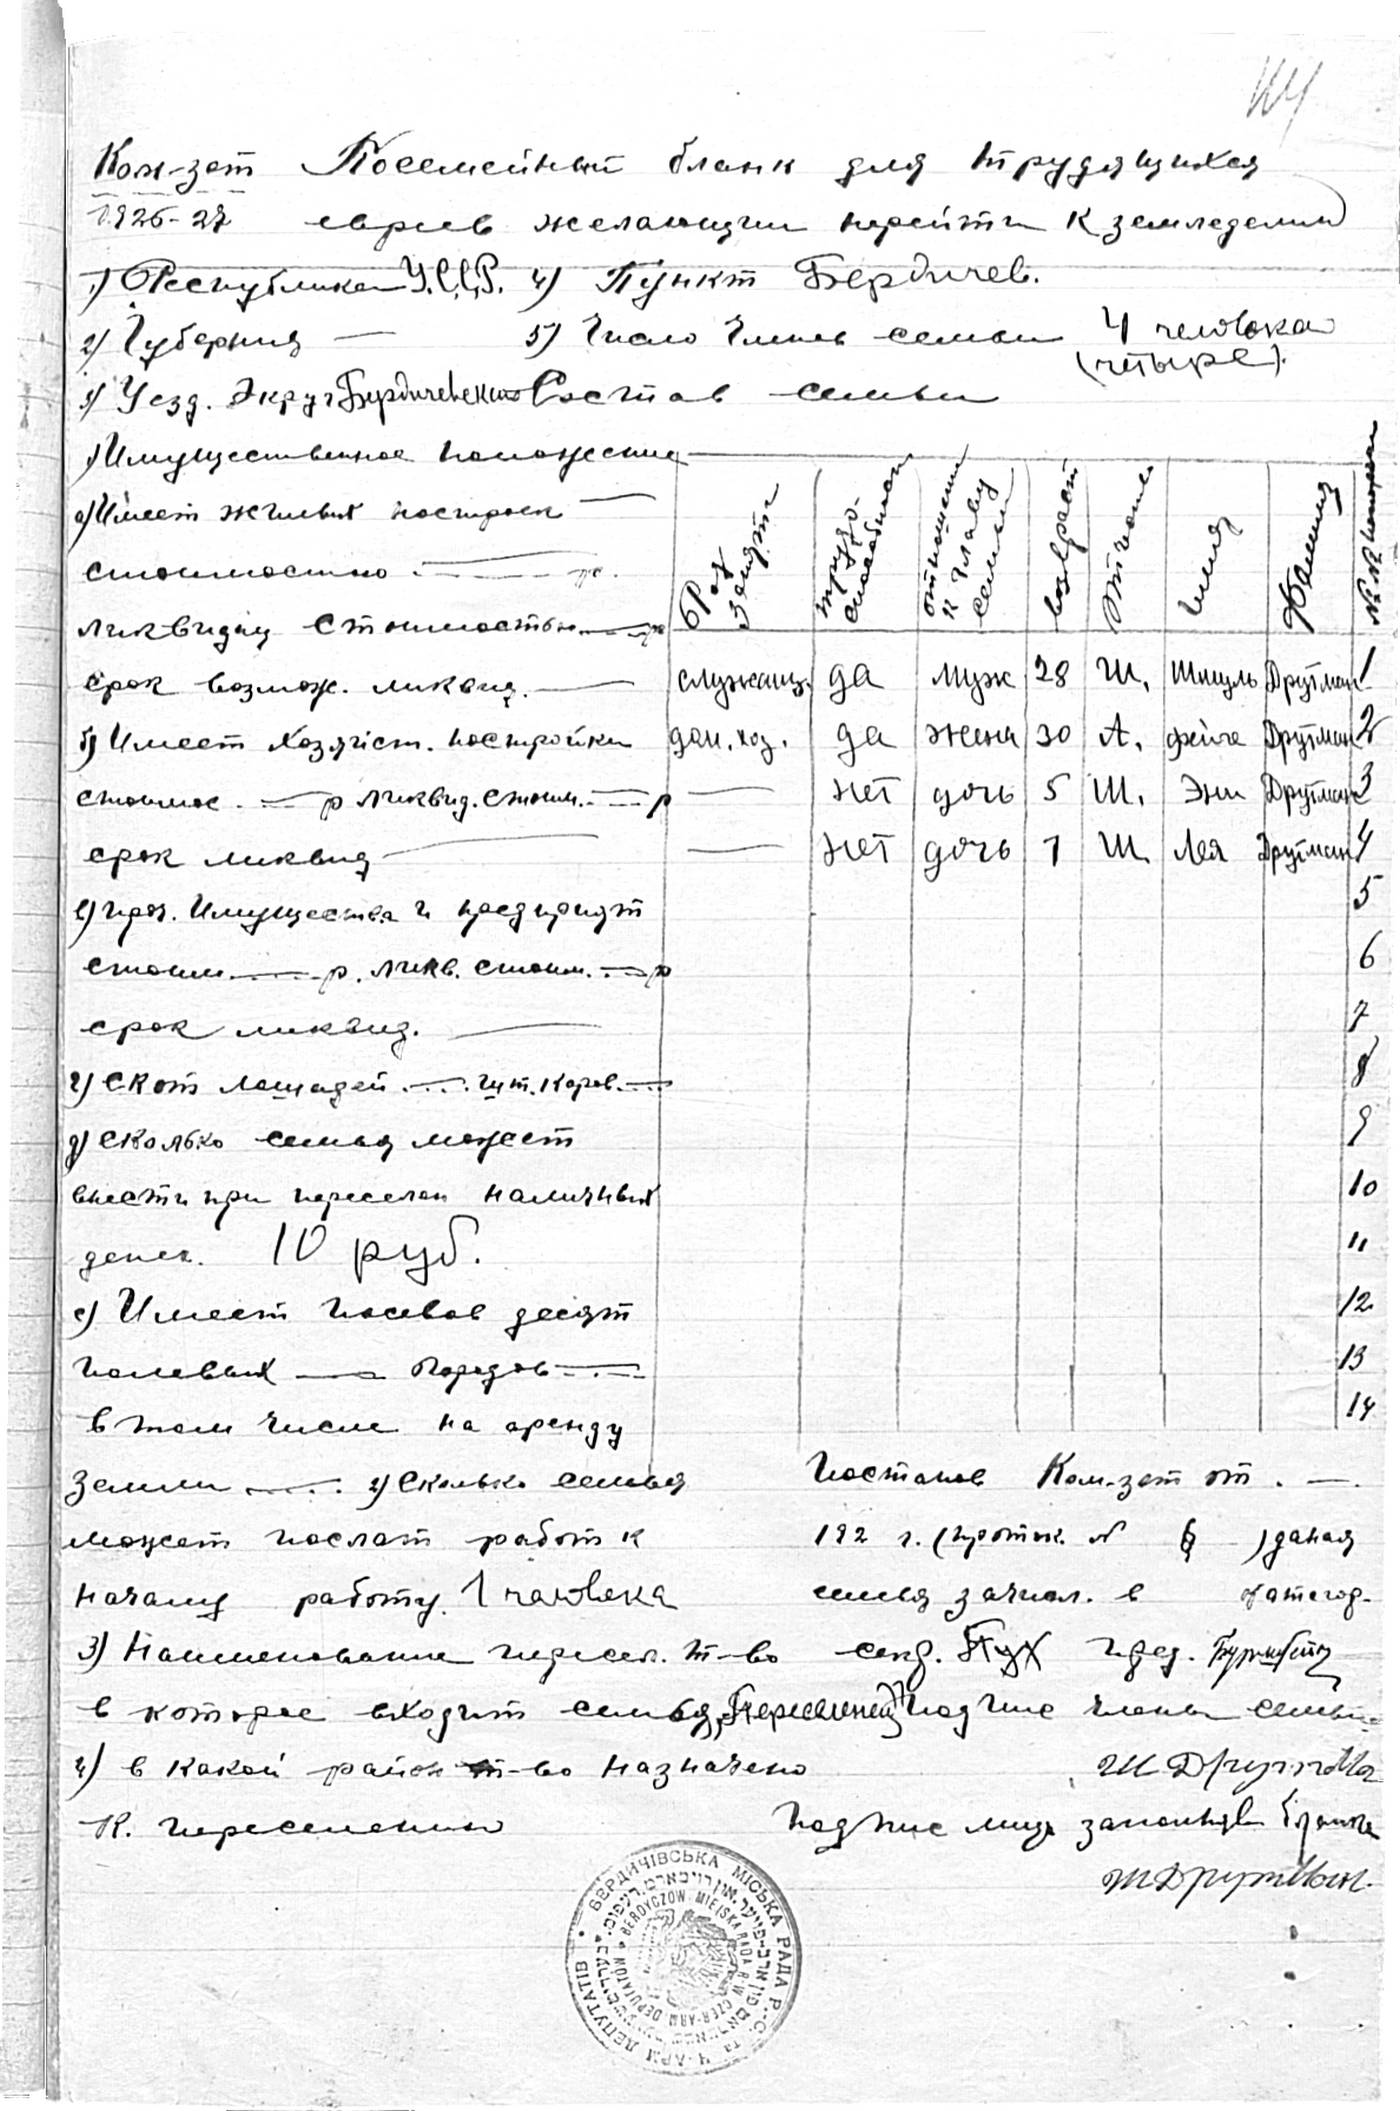 Ком-зет Посемейный бланк для трудящихся
1926-27 евреев желающим перейти к земледелию
1) Республика У.С.С.Р. 4) Пункт Бердичев.
2) Губерния — 5) Число член семьи 4 человека
(четыре).
3) Уезд. Округ Бердичевский Состав семьи
1) Имущественное положение
а) Имеет жилых построек —
стоимостью — р.
ликвидац стоимостью — р
срок возмож. ликвид. —
б) Имеет хозяйст. постройки
стоимос. — р ликвид. стоим. — р
срок ликвид —
в) проч. имущества и предприят
стоим. — р. ликв. стоим. — р
срок ликвид. —
г) Скот лошадей — шт. Коров. —
д) Сколько семья может
внести при переселен наличных
денег. 10 руб.
е) Имеет посевов десят
полевых — огородов —
в том числе на аренду
земли — г) Сколько семья
может послат работ к
началу работу. 1 человека
3) Наименование пересел. т-во
в которое входит семья
4) в какой район т-во назначено
к. переселению
Род занят трудо-способност отношение к главу семьи возраст Отчест Имя Фамилия №№
служащ. да муж 28 Ш. Шмуль Друтман 1
дом. хоз. да жена 30 А. фейга Друтман 2
— нет дочь 5 Ш. Эни Друтман 3
— нет дочь 1 Ш. Лея Друтман 4
5
6
7
8
9
10
11
12
13
14
Постанов Ком-зет от . — .
192 г. (проток. № § ) даная
семья зачисл. в категор.
секр. пред.
подпис члены семьи
Ш Друтман
подпис лица заполнив бланка
Ш Друтман.
БЕРДИЧІВСЬКА МІСЬКА РАДА Р.-С. та Ч-АРМ ДЕПУТАТІВ
BERDYCZOW MIEJSKA RADA R-W CZER-ARM DEPUTATÓW